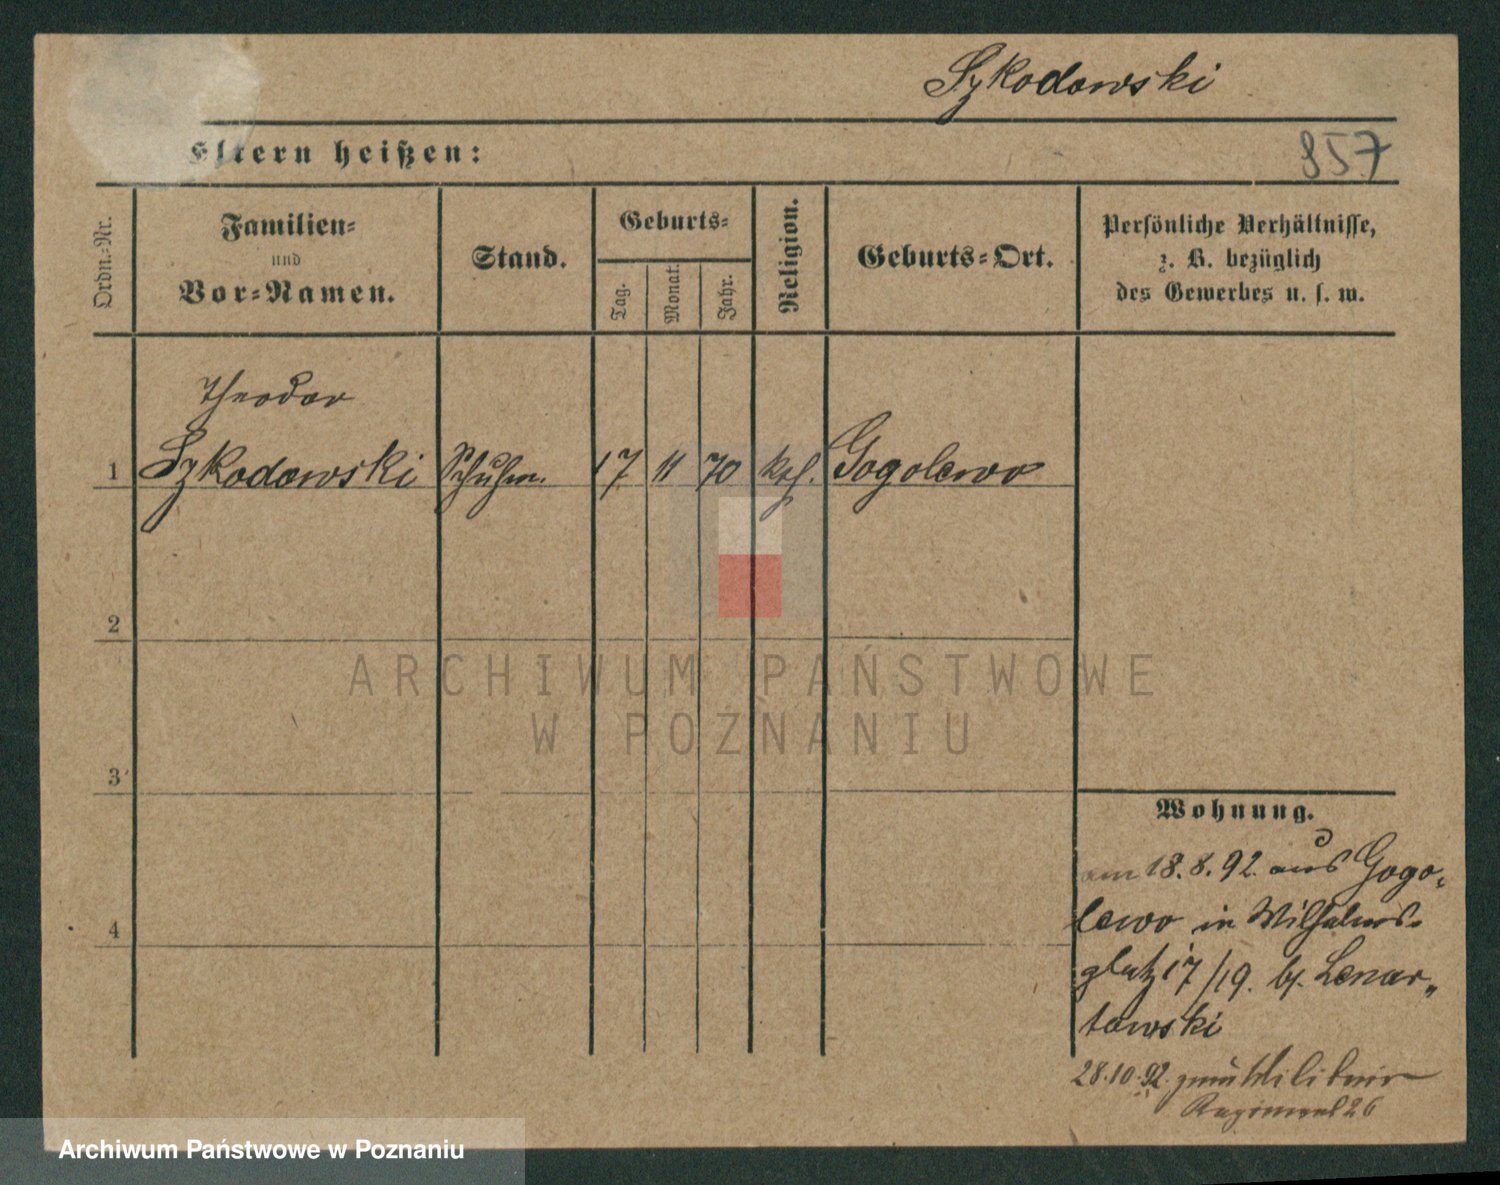 Szkodowski
Eltern heißen:
857
Ordn.-Nr.
Familien-
und
Vor-Namen.
Stand.
Geburts-
Tag.
Monat.
Jahr.
Religion.
Geburts-Ort.
Persönliche Verhältnisse,
z. B. bezüglich
des Gewerbes u. s. w.
Theodor
1 Szkodowski Schuhm. 17 11 70 kth. Gogolewo
2
ARCHIWUM PAŃSTWOWE
W POZNANIU
3
Wohnung.
am 18. 8. 92. aus Gogo-
lewo in Wilhelms-
platz 17/19. bj. Lenar-
towski
4
28.10.92. zum Militair
Regiment 26
Archiwum Państwowe w Poznaniu